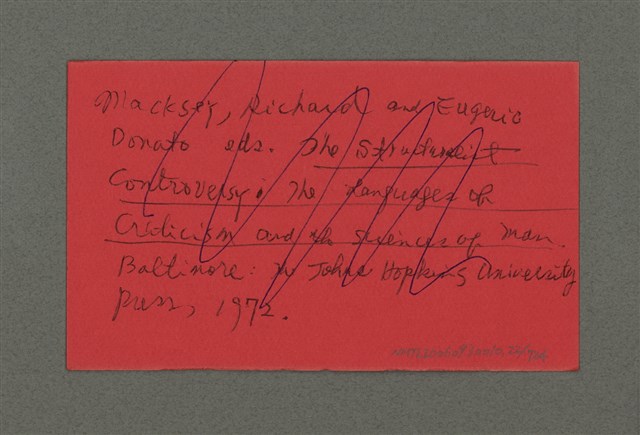 Macksey, Richard and Eugenio
Donato eds. The Structuralist
Controversy: The Languages of
Criticism and the Sciences of Man.
Baltimore: The Johns Hopkins University
Press, 1972.